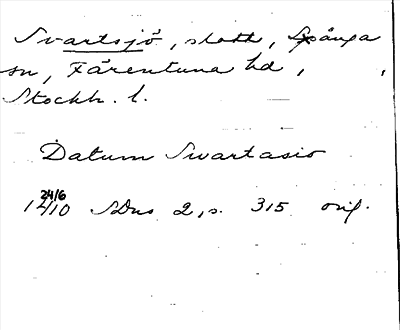 Svartsjö, slott, Spånga
sn, Färentuna hd,
Stockh. l.
Datum Swartasio
24/6
1410 SDns 2, s. 315 orig.